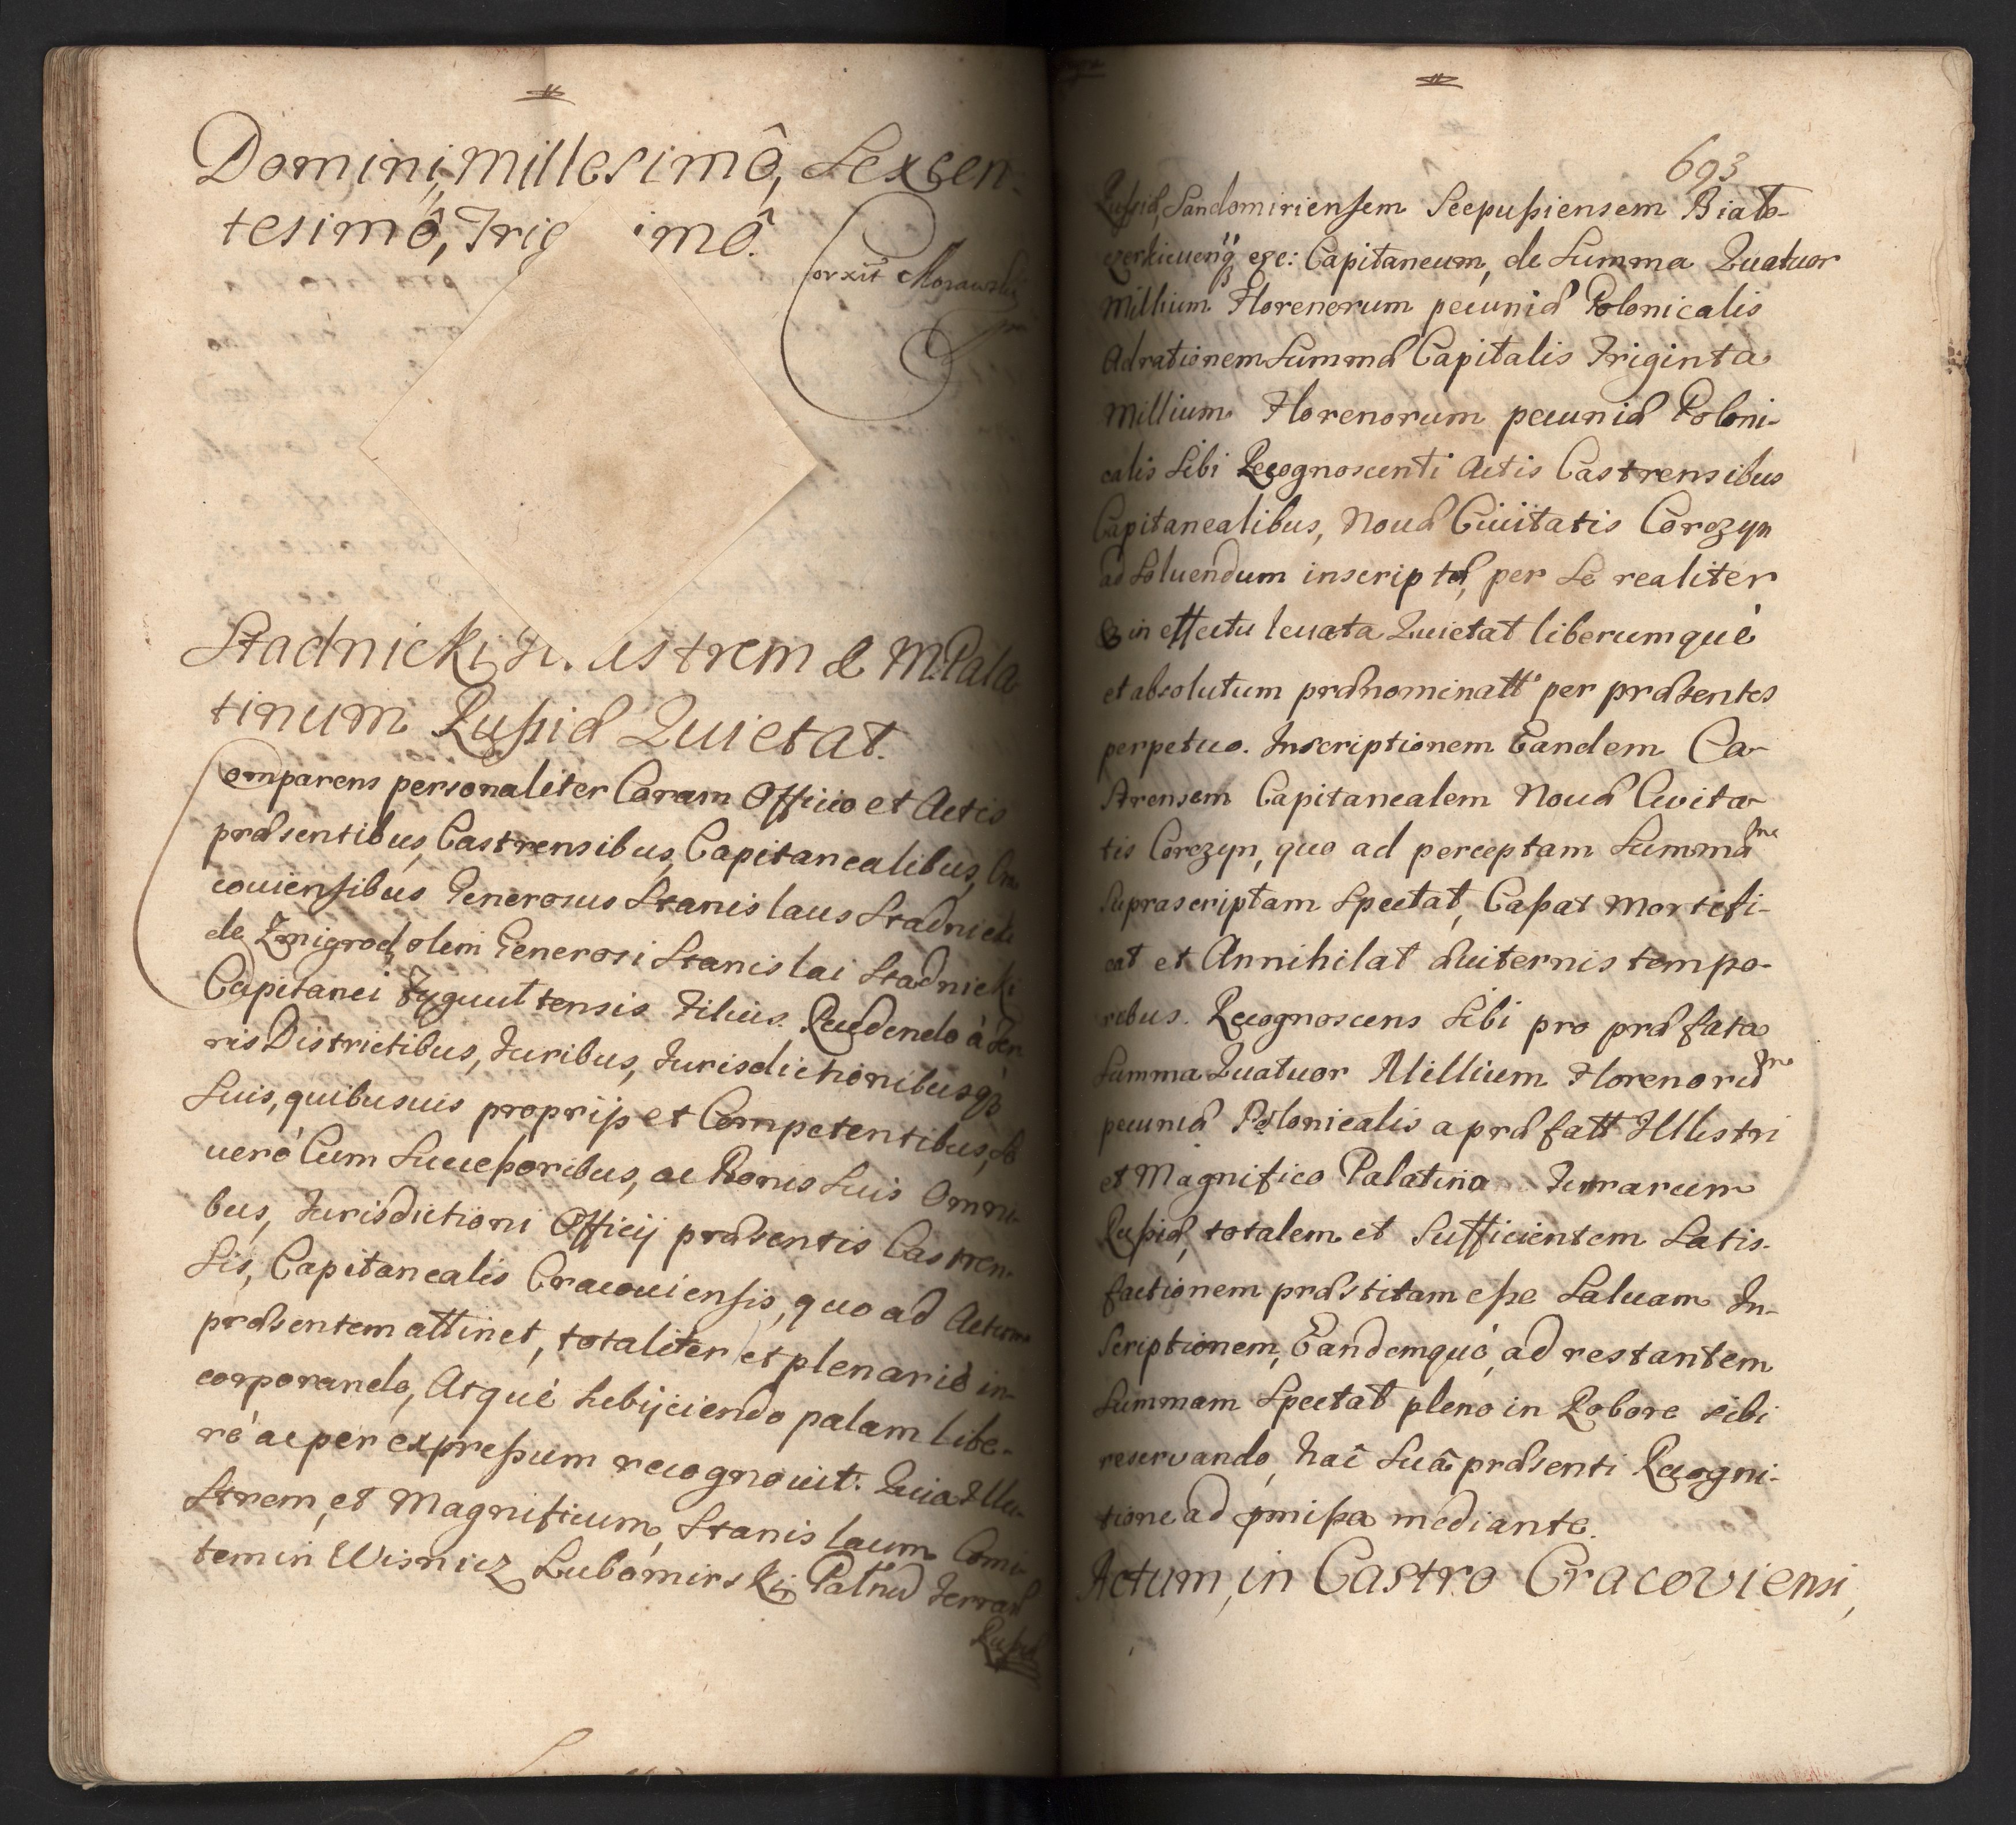 Dominí, Millesimô, Sexcen-
tesimô, Trig imô.
orxit Morawski
Stadnicki, ustrem & M. Pala
tinum Russiæ Quietat.
Comparens personaliter Coram Officio et Actis
præsentibus, Castrensibus, Capitanealibus, Cra
couiensibus Generosus Stanislaus Stadnicki
de Zmigrod, olim Generosi Stanislai Stadnicki
Capitanei Zyguultensis Filius. Recedendo à Ter
ris Districtibus, Iuribus, Iurisdictionibusq3
Suis, quibusuis proprijs et Competentibus, Se
uerò Cum Successoribus, ac Bonis Suis Omni-
bus, Iurisdictioni Officij præsentis Castren-
sis, Capitanealis Cracouiensis, quo ad Actum
præsentem attinet, totaliter et plenariè in-
corporando, Atquè subijciendo palam libe-
rè ac per expressum recognouit. Quia Illu-
strem, et Magnificum, Stanislaum Comi-
tem in Wisnicz Lubomirski, Palnū Terrarū
Russiæ
693
Russiæ, Sandomiriensem Scepusiensem Biało-
czerkieuenq3 ezc: Capitaneum, de Summa Quatuor
Millium Florenorum pecuniæ Polonicalis
Ad rationem Summæ Capitalis Triginta
Millium Florenorum pecuniæ Poloni-
calis Sibi Recognoscenti Actis Castrensibus
Capitanealibus, Nouæ Ciuitatis Corczyn
ad Soluendum inscriptæ, per Se realiter
& in effectu leuata Quietat liberumquè
et absolutum prænominatt per præsentes
perpetuo. Inscriptionem Eandem Ca-
strensem Capitanealem Nouæ Civita-
tis Corczyn, quo ad perceptam Summā
Suprascriptam Spectat, Cassat Mortifi-
cat et Annihilat æuiternis tempo-
ribus. Recognoscens Sibi pro præfata
Summa Quatuor Millium Florenorū
pecuniæ Polonicalis a præfatt Illustri
et Magnifico Palatino Terrarum
Russiæ, totalem et Sufficientem Satis-
factionem præstitam esse Saluam In-
scriptionem, Eandemquè, ad restantem
Summam Spectat pleno in Robore sibi
reservando, hac Suâ præsenti Recogni-
tione ad pmissa mediante.
Actum, in Castro Cracoviensi,